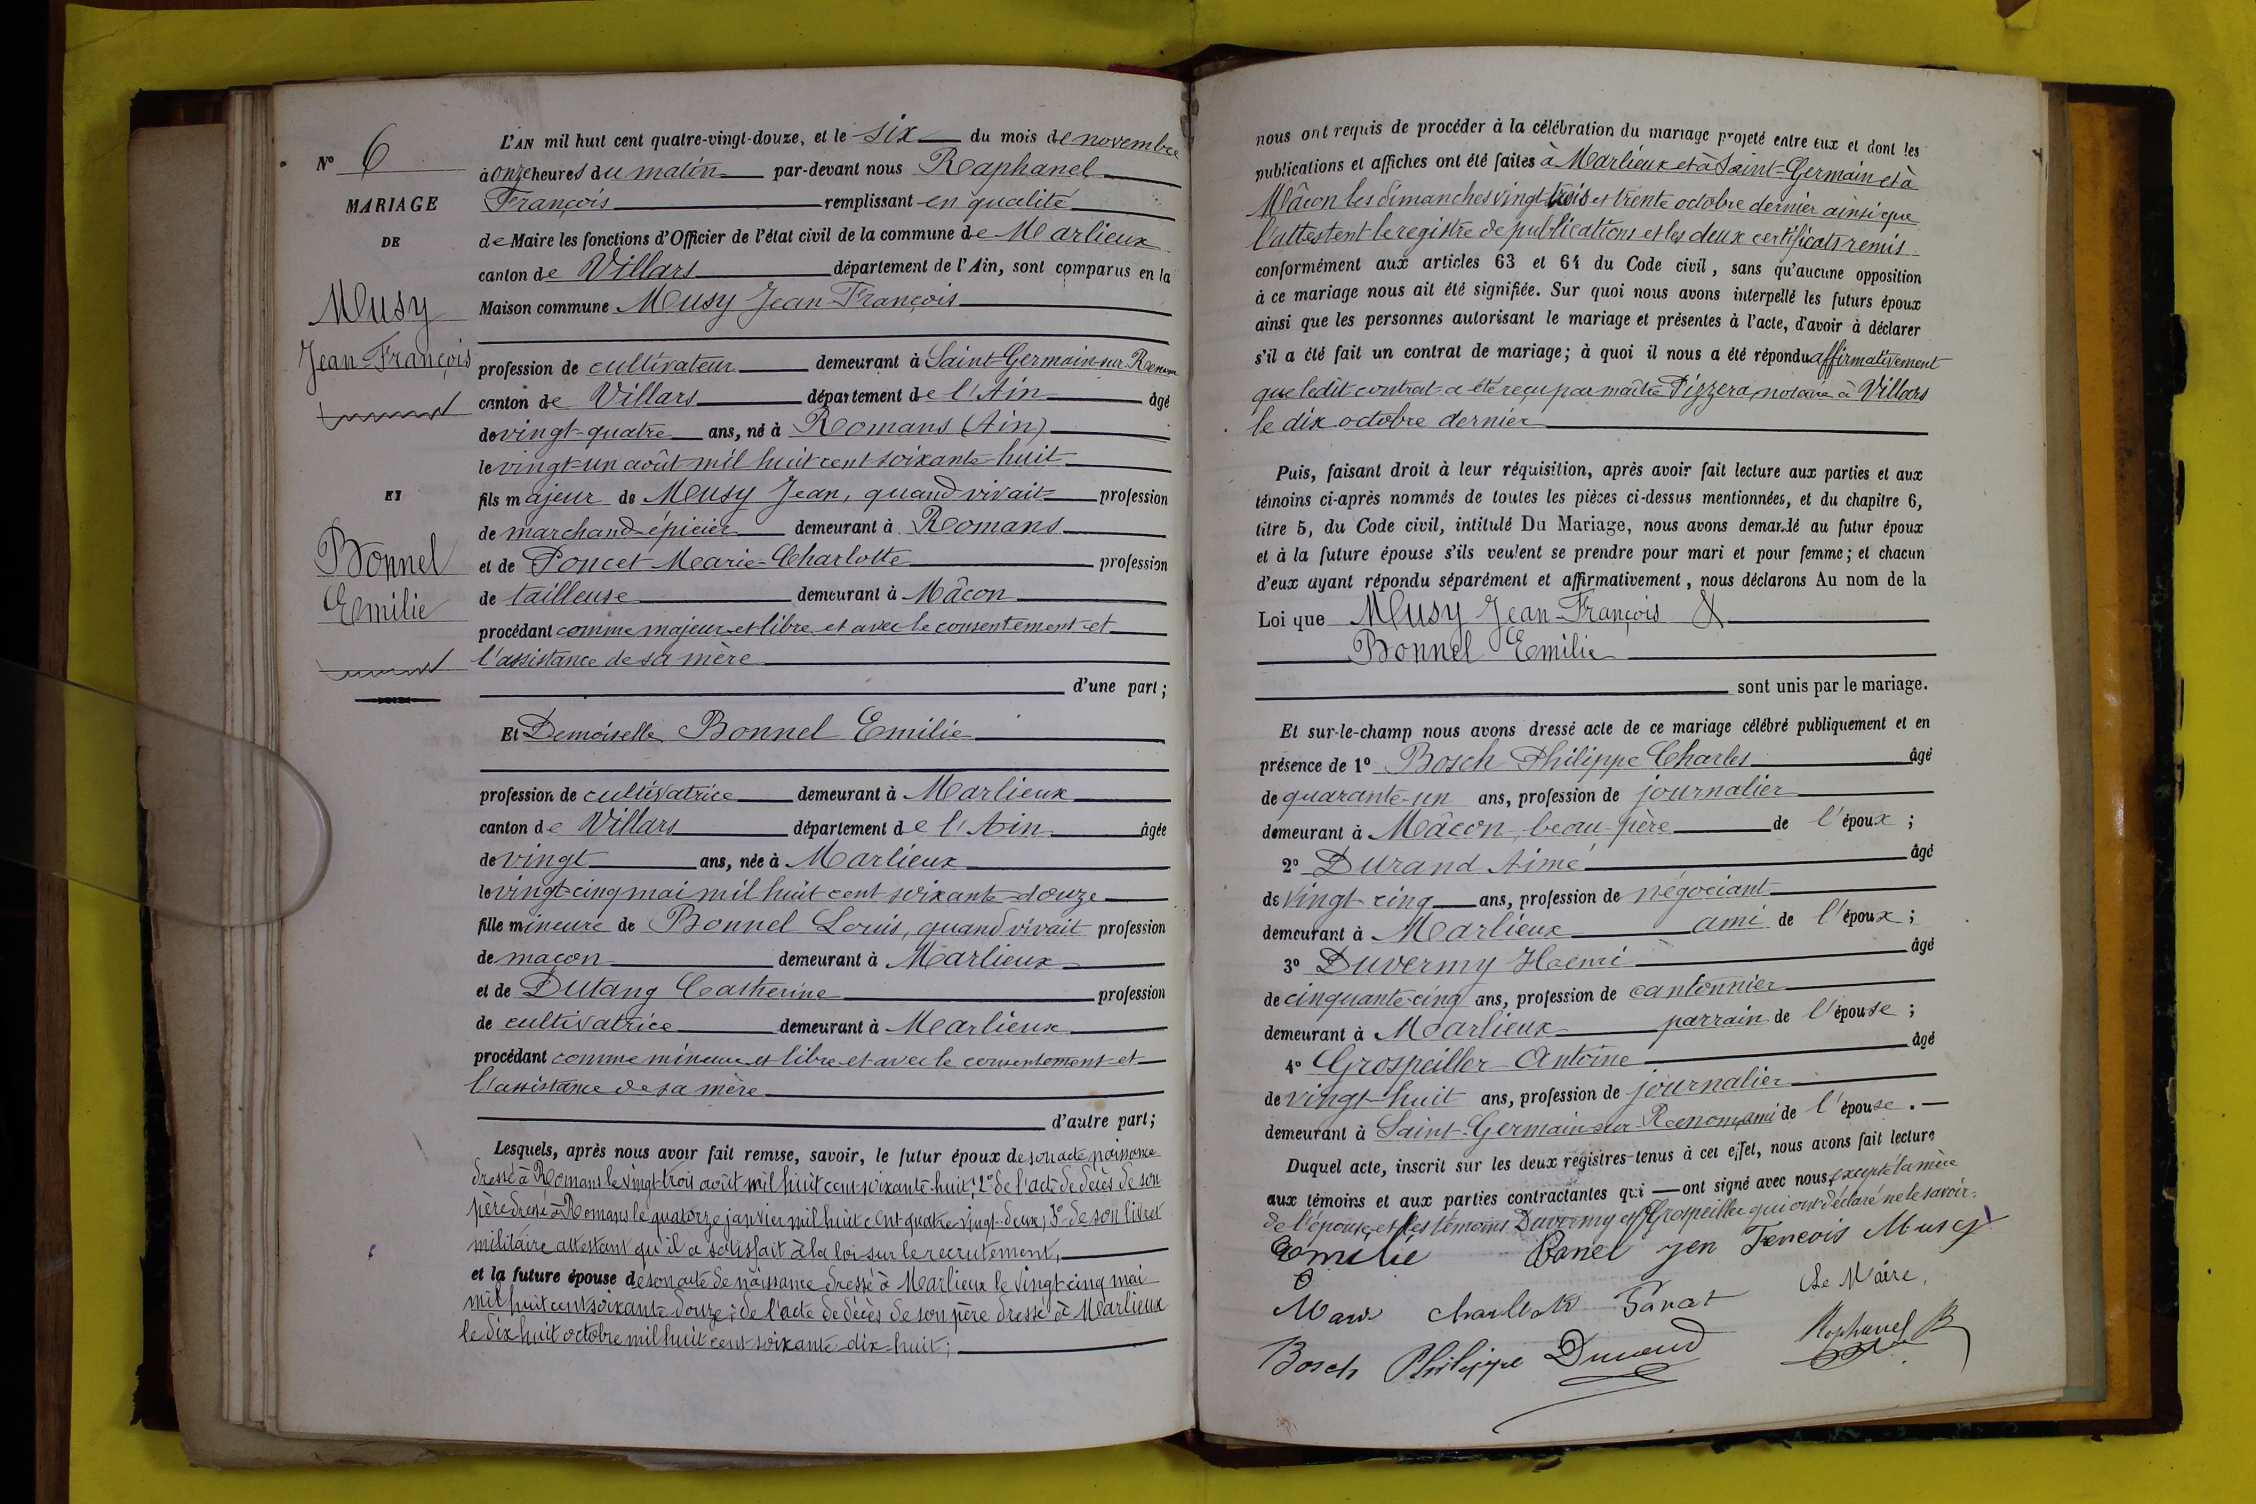 N° 6
MARIAGE
DE
Musy
Jean-François
ET
Bonnel
Emilie
L'AN mil huit cent quatre-vingt-douze, et le six du mois de novembre
à onze heures du matin par-devant nous Raphanel
François remplissant en qualité
de Maire les fonctions d'Officier de l'état civil de la commune de Marlieux
canton de Villars département de l'Ain, sont comparus en la
Maison commune Musy Jean-François
profession de cultivateur demeurant à Saint-Germain-sur-Renom
canton de Villars département de l'Ain âgé
de vingt-quatre ans, né à Romans (Ain)
le vingt-un août mil huit cent soixante-huit
fils majeur de Musy Jean, quand vivait profession
de marchand-épicier demeurant à Romans
et de Poncet Marie-Charlotte profession
de tailleuse demeurant à Mâcon
procédant comme majeur et libre et avec le consentement et
l'assistance de sa mère
d'une part;
Et Demoiselle Bonnel Emilie
profession de cultivatrice demeurant à Marlieux
canton de Villars département de l'Ain âgée
de vingt ans, née à Marlieux
le vingt-cinq mai mil huit cent soixante-douze
fille mineure de Bonnel Louis, quand vivait profession
de maçon demeurant à Marlieux
et de Dutang Catherine profession
de cultivatrice demeurant à Marlieux
procédant comme mineure et libre et avec le consentement et
l'assistance de sa mère
d'autre part;
Lesquels, après nous avoir fait remise, savoir, le futur époux de son acte naissance
dressé à Romans le vingt-trois août mil huit cent soixante-huit; 2° de l'acte de décès de son
père dressé à Romans le quatorze janvier mil huit cent quatre-vingt-deux; 3° de son livret
militaire attestant qu'il a satisfait à la loi sur le recrutement,
et la future épouse de son acte de naissance dressé à Marlieux le vingt-cinq mai
mil huit cent soixante-douze; de l'acte de décès de son père dressé à Marlieux
le dix huit octobre mil huit cent soixante-dix-huit;
nous ont requis de procéder à la célébration du mariage projeté entre eux et dont les
publications et affiches ont été faites à Marlieux et à Saint-Germain et à
Mâcon les dimanches vingt trois et trente octobre dernier ainsi que
l'attestent le registre de publications et les deux certificats remis
conformément aux articles 63 et 64 du Code civil, sans qu'aucune opposition
à ce mariage nous ait été signifiée. Sur quoi nous avons interpellé les futurs époux
ainsi que les personnes autorisant le mariage et présentes à l'acte, d'avoir à déclarer
s'il a été fait un contrat de mariage; à quoi il nous a été répondu affirmativement
que ledit contrat a été reçu par maître Pizzera, notaire à Villars
le dix octobre dernier
Puis, faisant droit à leur réquisition, après avoir fait lecture aux parties et aux
témoins ci-après nommés de toutes les pièces ci-dessus mentionnées, et du chapitre 6,
titre 5, du Code civil, intitulé Du Mariage, nous avons demandé au futur époux
et à la future épouse s'ils veulent se prendre pour mari et pour femme; et chacun
d'eux ayant répondu séparément et affirmativement, nous déclarons Au nom de la
Loi que Musy Jean-François &
Bonnel Emilie
sont unis par le mariage.
Et sur-le-champ nous avons dressé acte de ce mariage célébré publiquement et en
présence de 1° Bosch Philippe Charles âgé
de quarante-un ans, profession de journalier
demeurant à Mâcon, beau-père de l'époux;
2° Durand Aimé âgé
de vingt-cinq ans, profession de négociant
demeurant à Marlieux ami de l'époux;
3° Duvermy Henri âgé
de cinquante-cinq ans, profession de cantonnier
demeurant à Marlieux parrain de l'épouse;
4° Grospeiller Antoine âgé
de vingt-huit ans, profession de journalier
demeurant à Saint-Germain-sur-Renom, ami de l'épouse.
Duquel acte, inscrit sur les deux registres-tenus à cet effet, nous avons fait lecture
aux témoins et aux parties contractantes qui ont signé avec nous excepté la mère
de l'épouse et les témoins Duvermy et Grospeiller qui ont déclaré ne le savoir.
Emilie Banel Jen Fencois Musy
Le Maire,
Bosch Philippe Durand Raphanel